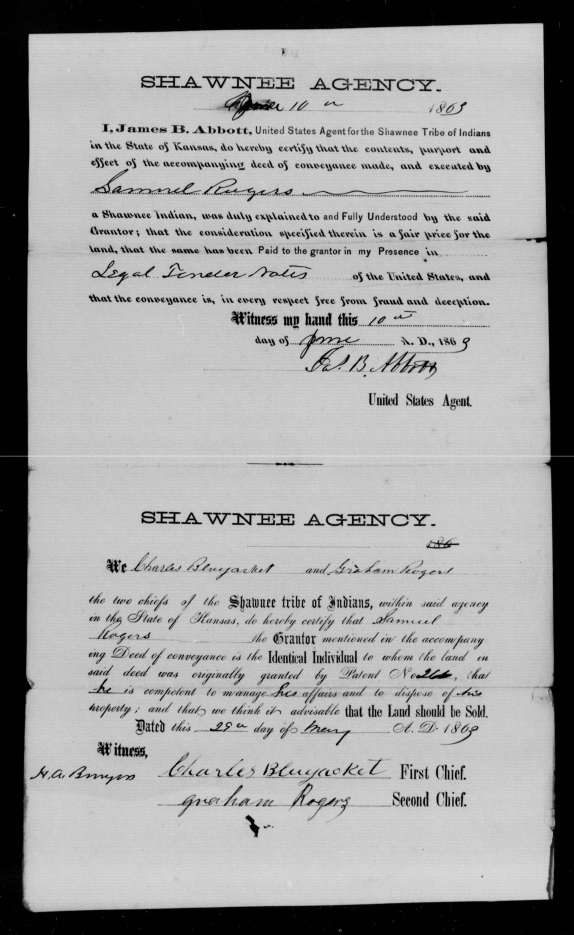 SHAWNEE AGENCY.
10th 1863
I, James B. Abbott, United States Agent for the Shawnee Tribe of Indians
in the State of Kansas, do hereby certify that the contents, purport and
effect of the accompanying deed of conveyance made, and executed by
Samuel Rogers
a Shawnee Indian, was duly explained to and Fully Understood by the said
Grantor; that the consideration specified therein is a fair price for the
land, that the same has been Paid to the grantor in my Presence in
Legal Tender Notes of the United States, and
that the conveyance is, in every respect free from fraud and deception.
Witness my hand this 10th
day of June A. D., 1863
Jas. B. Abbott
United States Agent.
SHAWNEE AGENCY.
186
We Charles Bluejacket and Graham Rogers
the two chiefs of the Shawnee tribe of Indians, within said agency
in the State of Kansas, do hereby certify that Samuel
Rogers the Grantor mentioned in the accompany
ing Deed of conveyance is the Identical Individual to whom the land in
said deed was originally granted by Patent No, that
he is competent to manage his affairs and to dispose of his
property; and that we think it advisable that the Land should be Sold.
Dated this 29th day of May A. D. 1863
Witness,
H. A.
Charles Bluejacket First Chief.
graham Rogers Second Chief.